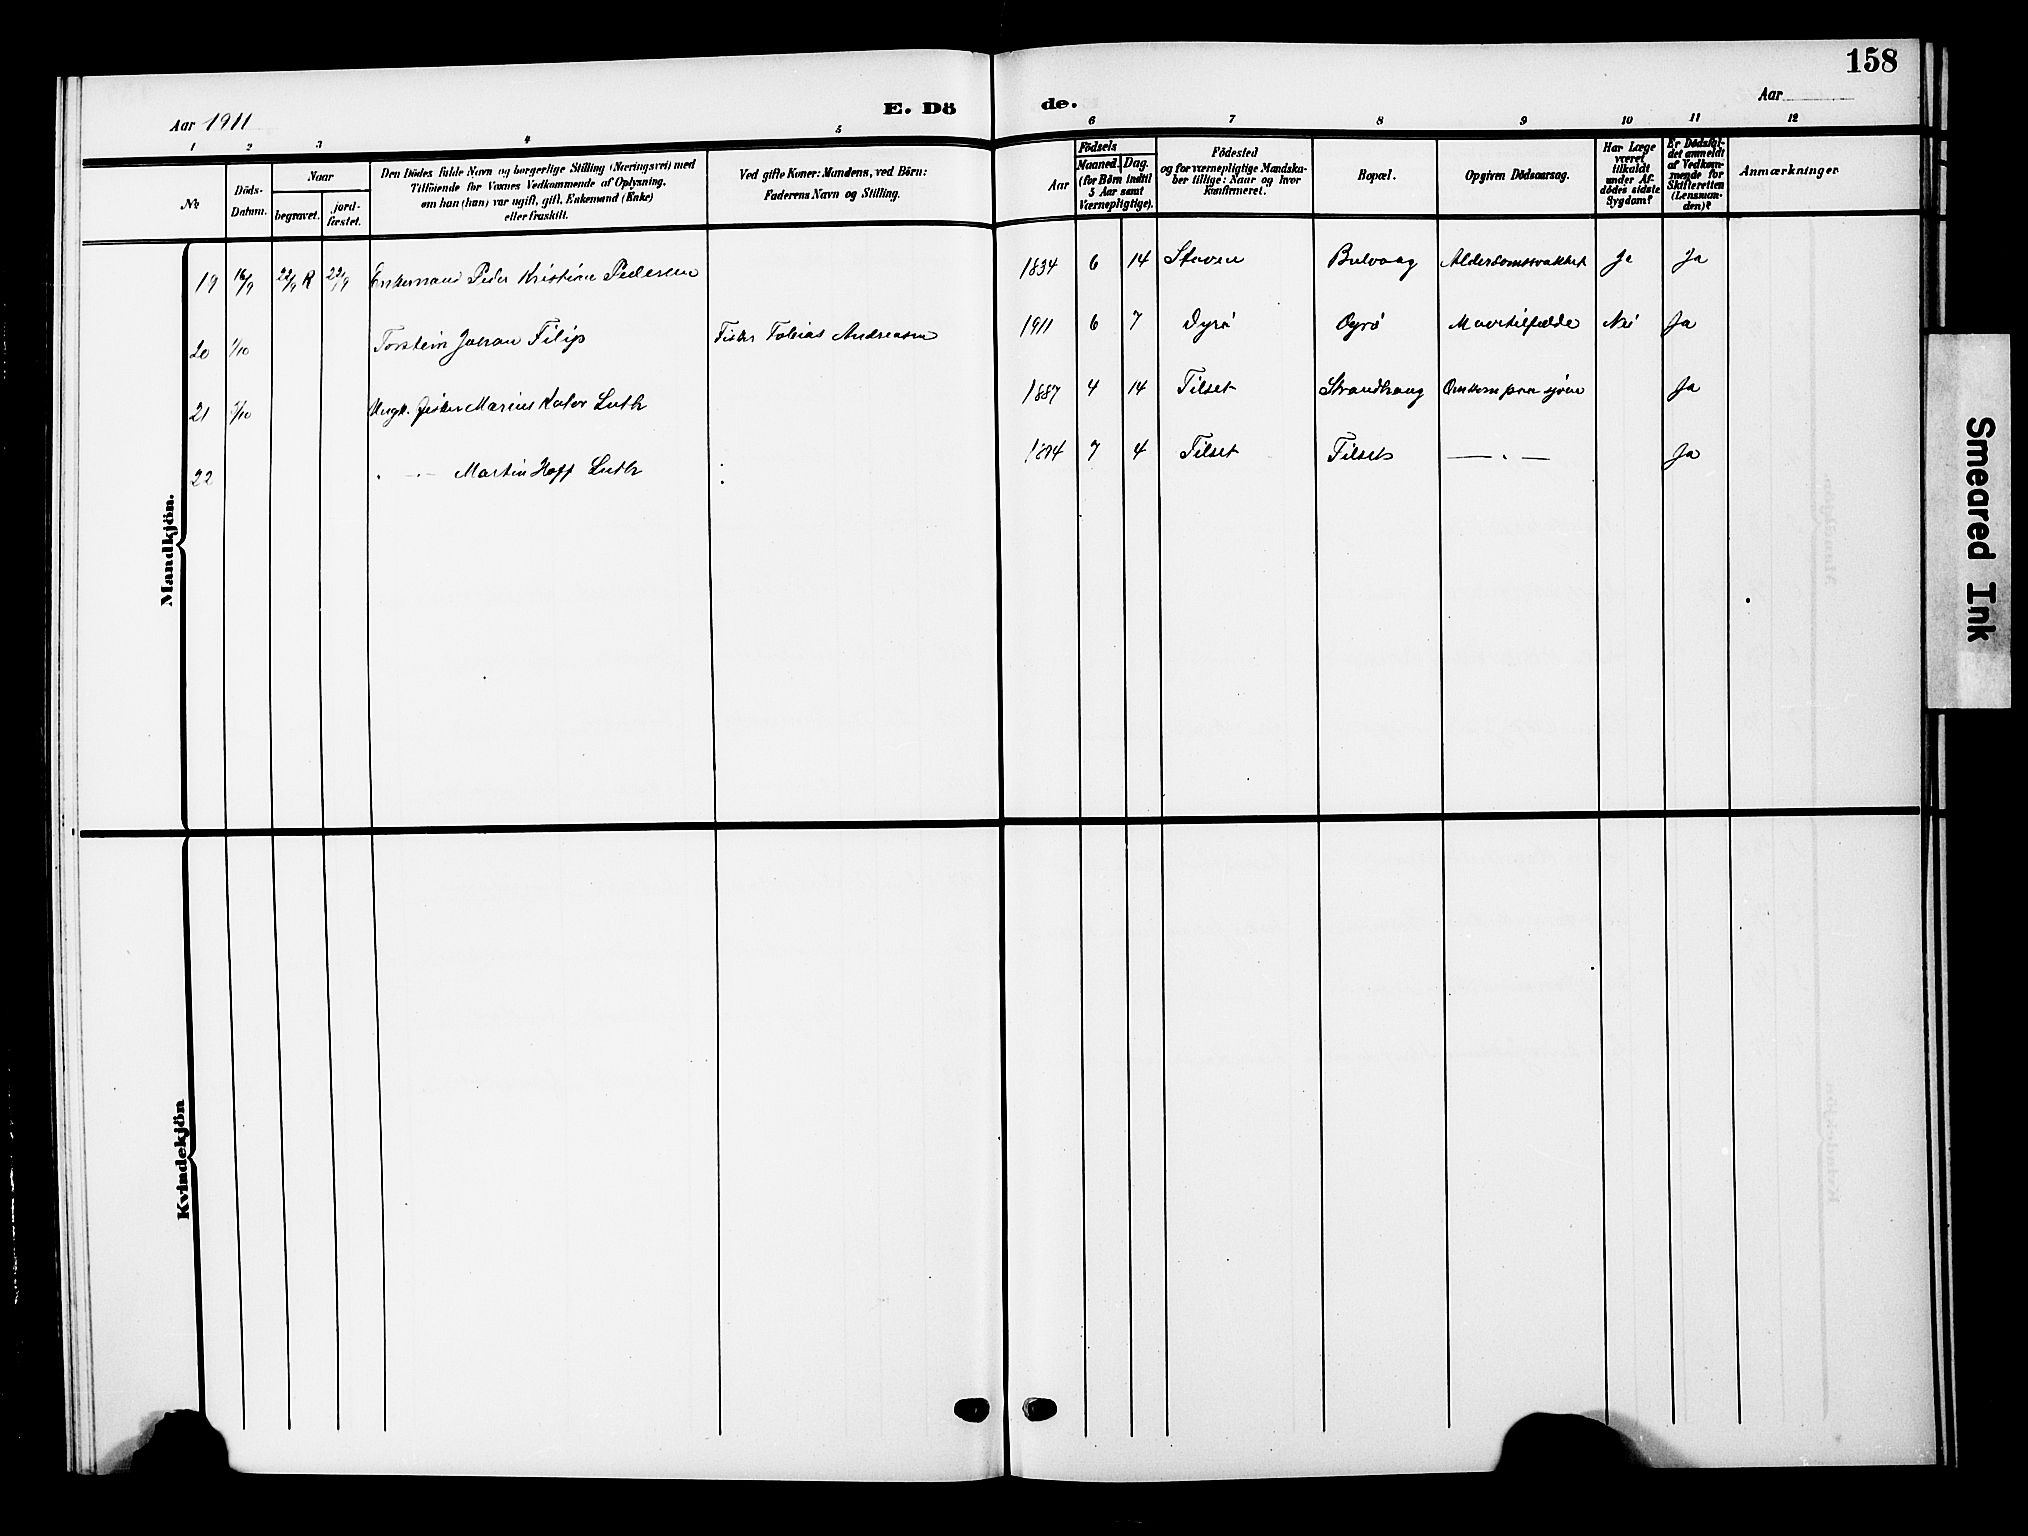 158
Aar 1911
E. Dö
de.
Aar
1 2 3 4 5
6 7 8 9 10 11 12
№
Döds-
Datum.
Naar
begravet.
jord-
fæstet.
Den Dödes fulde Navn og borgerlige Stilling (Næringsvei) med
Tilföiende for Voxnes Vedkommende af Oplysning,
om han (hun) var ugift, gift, Enkemand (Enke)
eller fraskilt.
Ved gifte Koner: Mandens, ved Börn:
Faderens Navn og Stilling.
Aar
Födsels
Maaned. Dag.
(for Börn indtil
5 Aar samt
Værnepligtige).
Födested
og for værnepligtige Mandska-
ber tillige: Naar og hvor
Konfirmeret.
Bopæl.
Opgiven Dödsaarsag.
Har Læge
været
tilkaldt
under Af-
dödes sidste
Sygdom?
Er Dödsfal-
det anmeldt
af Vedkom-
mende for
Skifteretten
(Lensman-
den)?
Anmærkninger
Mandkjön.
19 16/9 22/9 R 22/9 Enkemand Peder Kristian Pedersen 1834 6 14 Staven Bulvaag Alderdomssvakhet Ja Ja
20 1/10 Torstein Johan Filip Fisker Tobias Andreasen 1911 6 7 Dyrö Dyrö Mavetilfælde Nei Ja
21 5/10 Ungk. Fisker Marius Luth 1887 4 14 Tilset Strandhaug Omkom paa sjöen Ja
22 " —"— Martin Hoff Luth : 1894 7 4 Tilset Tilset — " — Ja
Kvindekjön
Smeared Ink